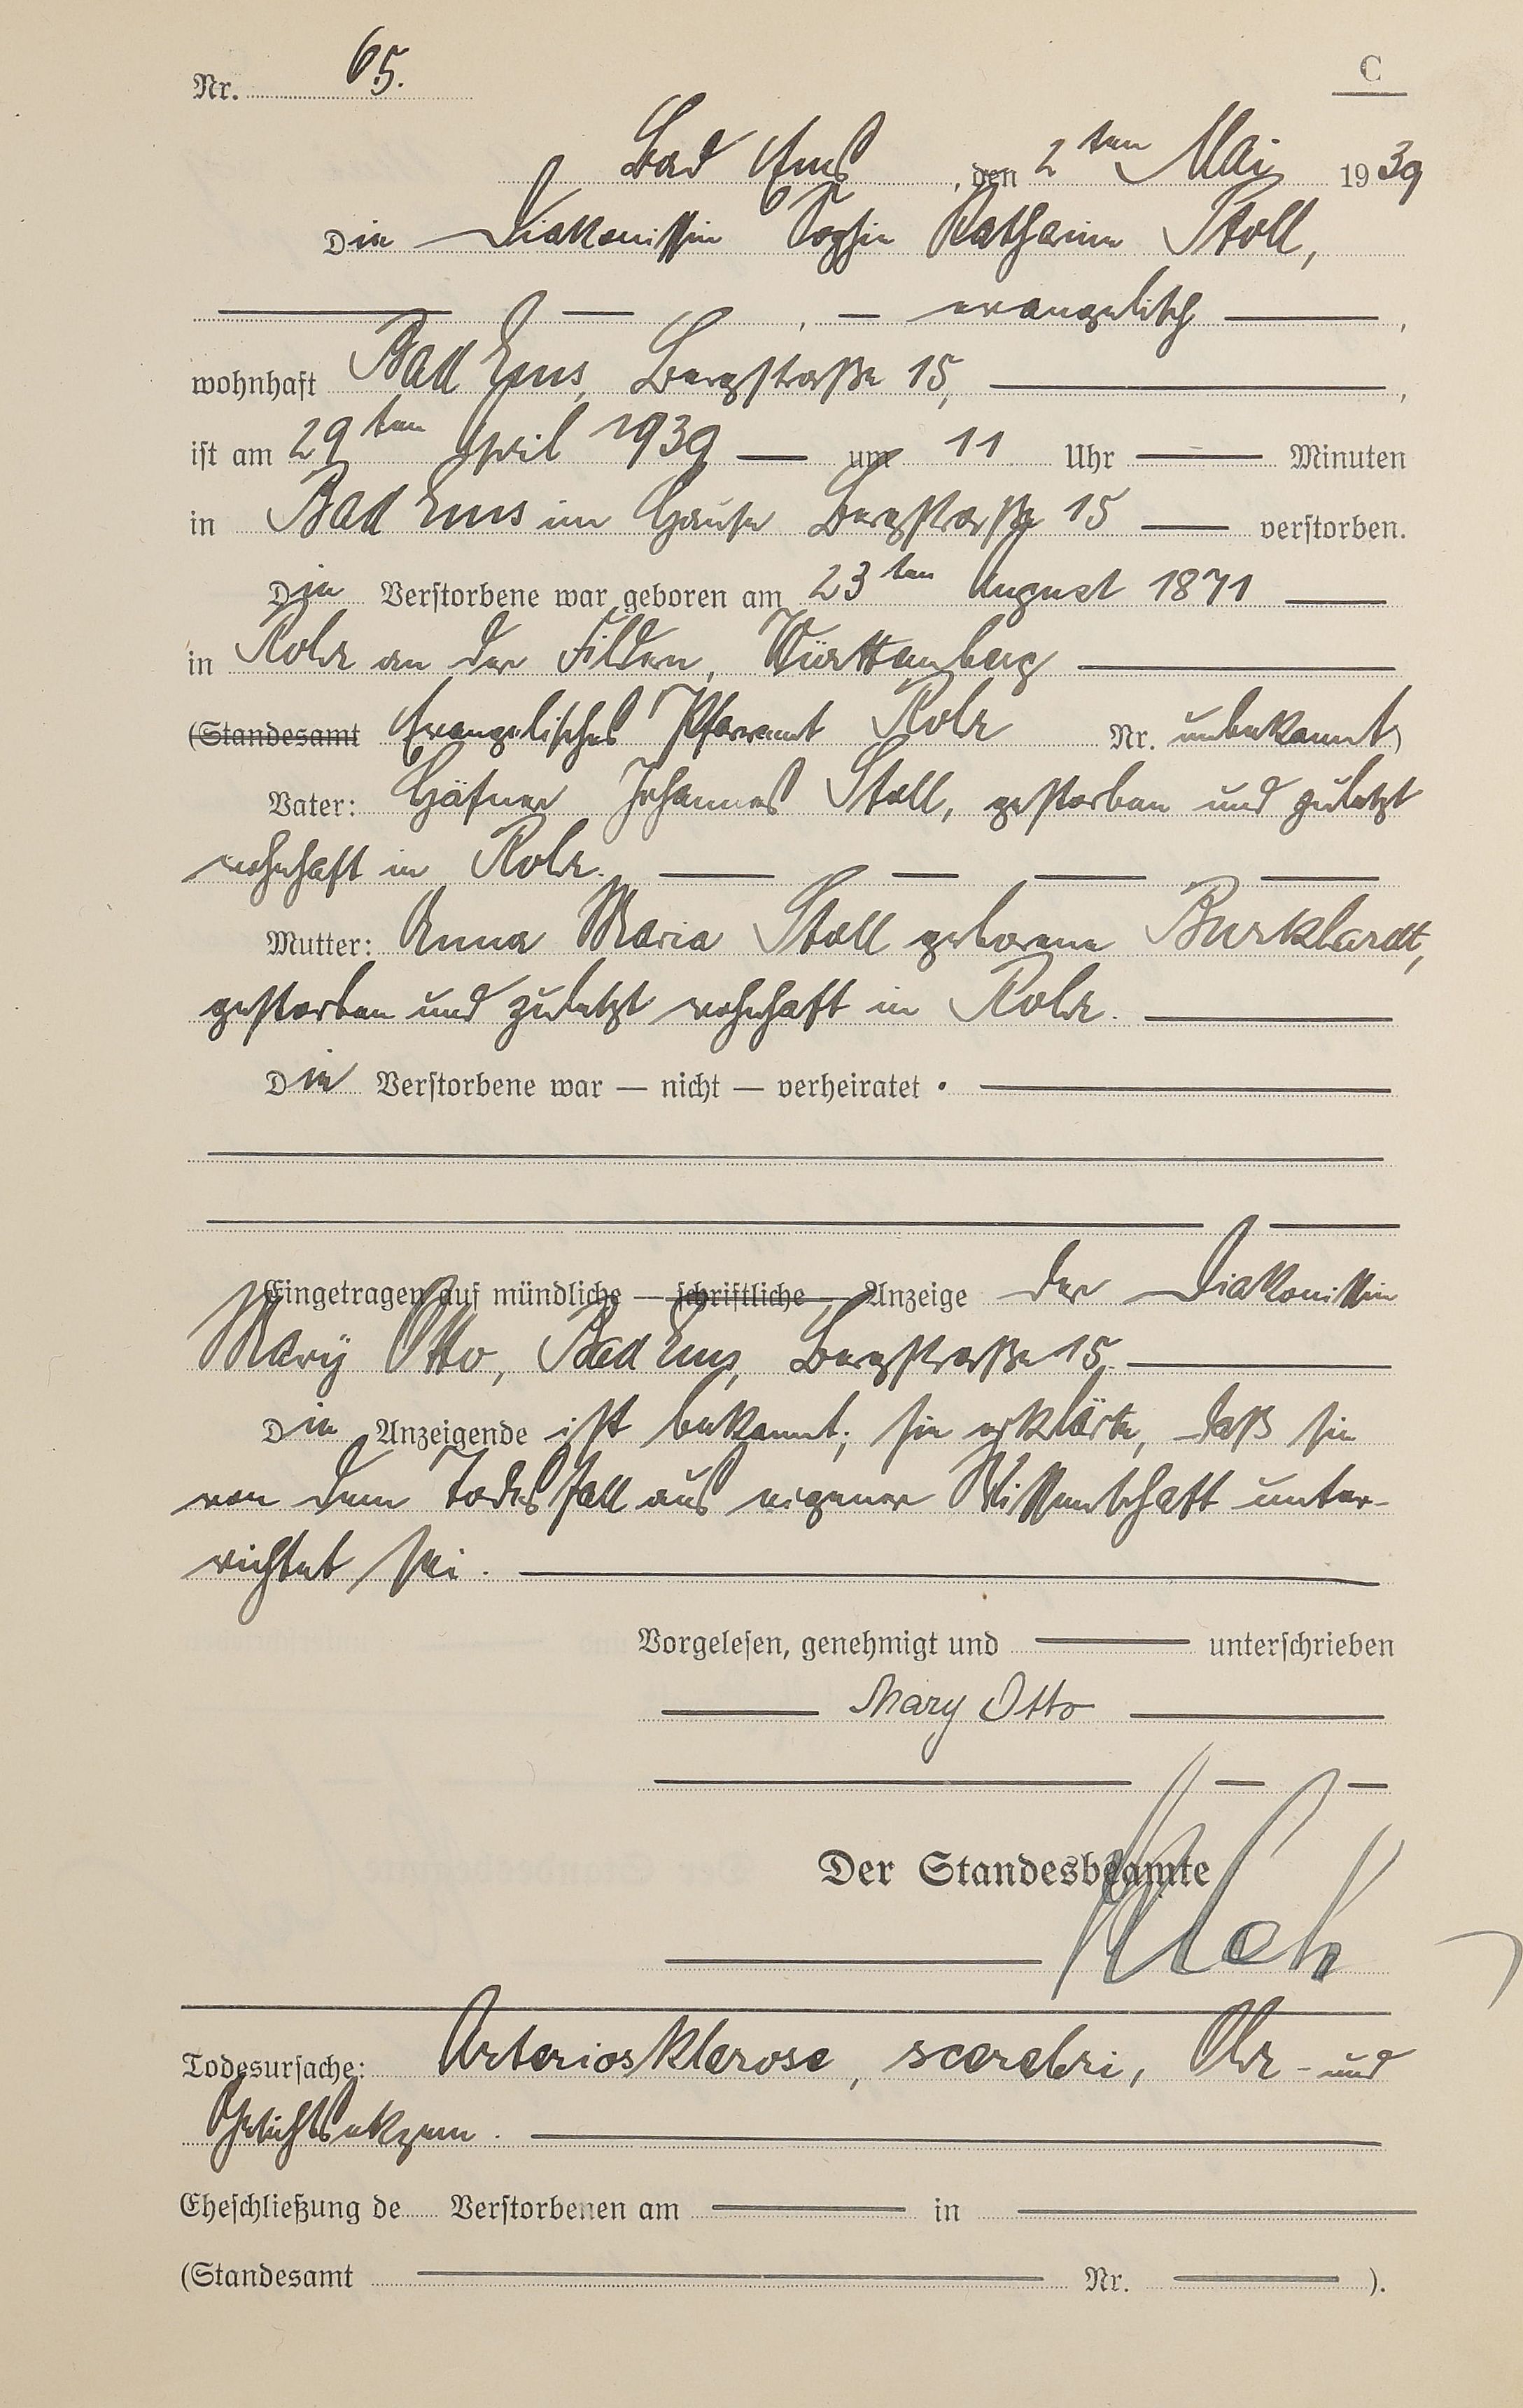 Nr. 65.
C
Bad Ems, den 2ten Mai 1939
Die Diakonissin Sophie Katharine Stoll,
— — , — evangelisch —,
wohnhaft Bad Ems, Bergstraße 15, —,
ist am 29ten April 1939 — um 11 Uhr — Minuten
in Bad Ems im Hause Bergstraße 15 — verstorben.
Die Verstorbene war geboren am 23ten August 1871 —
in Rohr an der Fildern, Württemberg —
(Standesamt Evangelisches Pfarramt Rohr Nr. unbekannt)
Vater: Häfner Johannes Stoll, gestorben und zuletzt
wohnhaft in Rohr. — — — —
Mutter: Anna Maria Stoll geborene Burkhardt,
gestorben und zuletzt wohnhaft in Rohr. —
Die Verstorbene war — nicht — verheiratet. —
Eingetragen auf mündliche — schriftliche — Anzeige der Diakonissin
Mary Otto, Bad Ems, Bergstraße 15. —
Die Anzeigende ist bekannt; sie erklärte, daß sie
von dem Todesfall aus eigener Wissenschaft unter-
richtet sei. —
Vorgelesen, genehmigt und — unterschrieben
— Mary Otto —
Der Standesbeamte
Todesursache: Arteriosklerose, scerebri, Ohr- und
Gesichtsekzem. —
Eheschließung de Verstorbenen am — in —
(Standesamt — Nr. — ).